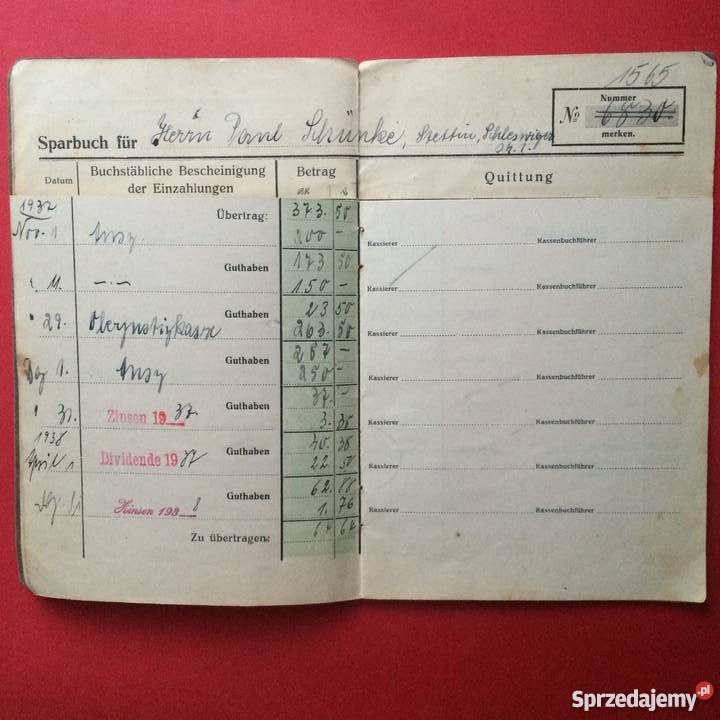 1565
Nummer
Sparbuch für Herrn Paul Schünke, Stettin, Schleswiger № 6830.
merken.
Datum Buchstäbliche Bescheinigung Betrag Quittung
der Einzahlungen
1937 Übertrag: 373. 50
Nov. 1 200 – Kassierer Kassenbuchführer
Guthaben 173 50
" 11. –·– 150 – Kassierer Kassenbuchführer
Guthaben 23 50
" 29. 263. 50 Kassierer Kassenbuchführer
Guthaben 287 –
Dez 1. 250 – Kassierer Kassenbuchführer
Guthaben 37. –
" 31. Zinsen 1937. 3. 38 Kassierer Kassenbuchführer
1938 Guthaben 40. 38
April 1 Dividende 1937 22. 50 Kassierer Kassenbuchführer
Guthaben 62. 88
Dez. 31 Zinsen 1938 1. 76 Kassierer Kassenbuchführer
Zu übertragen: 64. 64
Sprzedajemy.pl